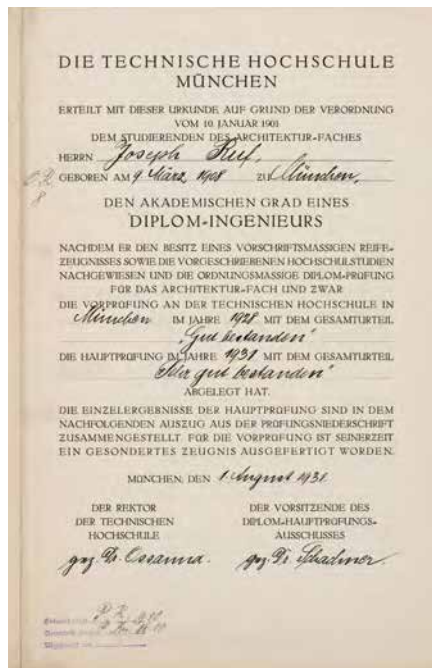 DIE TECHNISCHE HOCHSCHULE
MÜNCHEN
ERTEILT MIT DIESER URKUNDE AUF GRUND DER VERORDNUNG
VOM 10. JANUAR 1901
DEM STUDIERENDEN DES ARCHITEKTUR-FACHES
HERRN Joseph Ruf,
GEBOREN AM 9. März, 1908 ZU München,
DEN AKADEMISCHEN GRAD EINES
DIPLOM-INGENIEURS
NACHDEM ER DEN BESITZ EINES VORSCHRIFTSMÄSSIGEN REIFE-
ZEUGNISSES SOWIE DIE VORGESCHRIEBENEN HOCHSCHULSTUDIEN
NACHGEWIESEN UND DIE ORDNUNGSMÄSSIGE DIPLOM-PRÜFUNG
FÜR DAS ARCHITEKTUR-FACH UND ZWAR
DIE VORPRÜFUNG AN DER TECHNISCHEN HOCHSCHULE IN
München IM JAHRE 1928 MIT DEM GESAMTURTEIL
„Gut bestanden“
DIE HAUPTPRÜFUNG IM JAHRE 1931 MIT DEM GESAMTURTEIL
„Sehr gut bestanden“
ABGELEGT HAT.
DIE EINZELERGEBNISSE DER HAUPTPRÜFUNG SIND IN DEM
NACHFOLGENDEN AUSZUG AUS DER PRÜFUNGSNIEDERSCHRIFT
ZUSAMMENGESTELLT. FÜR DIE VORPRÜFUNG IST SEINERZEIT
EIN GESONDERTES ZEUGNIS AUSGEFERTIGT WORDEN.
MÜNCHEN, DEN 1. August 1931.
DER REKTOR
DER TECHNISCHEN
HOCHSCHULE
gez. Dr. Ossanna.
DER VORSITZENDE DES
DIPLOM-HAUPTPRÜFUNGS-
AUSSCHUSSES
gez. Dr. Schachner.